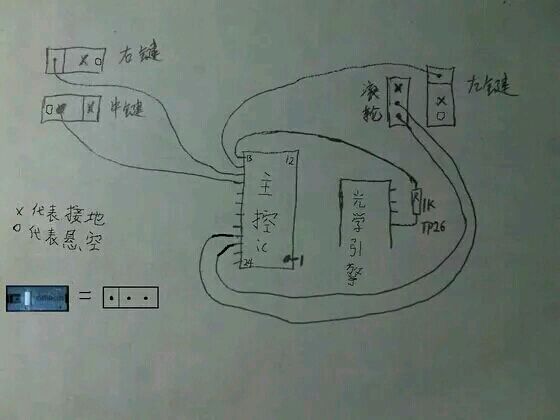 右键
中键
滚轮
左键
13
12
主控ic
24
1
光学引擎
1K
TP26
x 代表接地
o 代表悬空
=